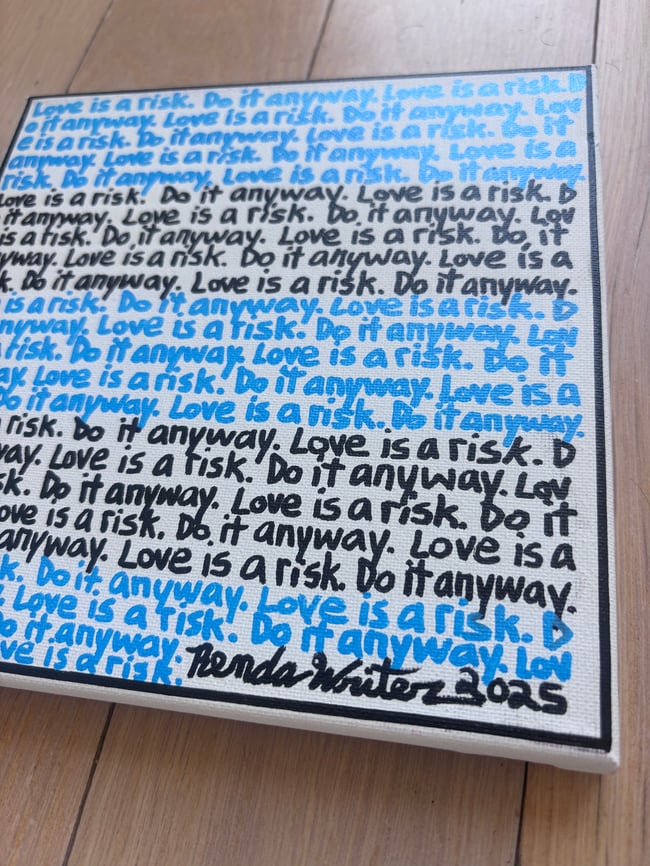 Love is a risk. Do it anyway. Love is a risk. D
o it anyway. Love is a risk. Do it anyway. Lov
e is a risk. Do it anyway. Love is a risk. Do it
anyway. Love is a risk. Do it anyway. Love is a
risk. Do it anyway. Love is a risk. Do it anyway.
Love is a risk. Do it anyway. Love is a risk. D
it anyway. Love is a risk. Do it anyway. Lov
is a risk. Do it anyway. Love is a risk. Do it
yway. Love is a risk. Do it anyway. Love is a
k. Do it anyway. Love is a risk. Do it anyway.
is a risk. Do it anyway. Love is a risk. D
nyway. Love is a risk. Do it anyway. Lov
a risk. Do it anyway. Love is a risk. Do it
ay. Love is a risk. Do it anyway. Love is a
Do it anyway. Love is a risk. Do it anyway.
risk. Do it anyway. Love is a risk. D
way. Love is a risk. Do it anyway. Lov
sk. Do it anyway. Love is a risk. Do it
ove is a risk. Do it anyway. Love is a
anyway. Love is a risk. Do it anyway.
k. Do it anyway. Love is a risk. D
Love is a risk. Do it anyway. Lov
Do it anyway.
ve is a risk. Renda Writer 2025